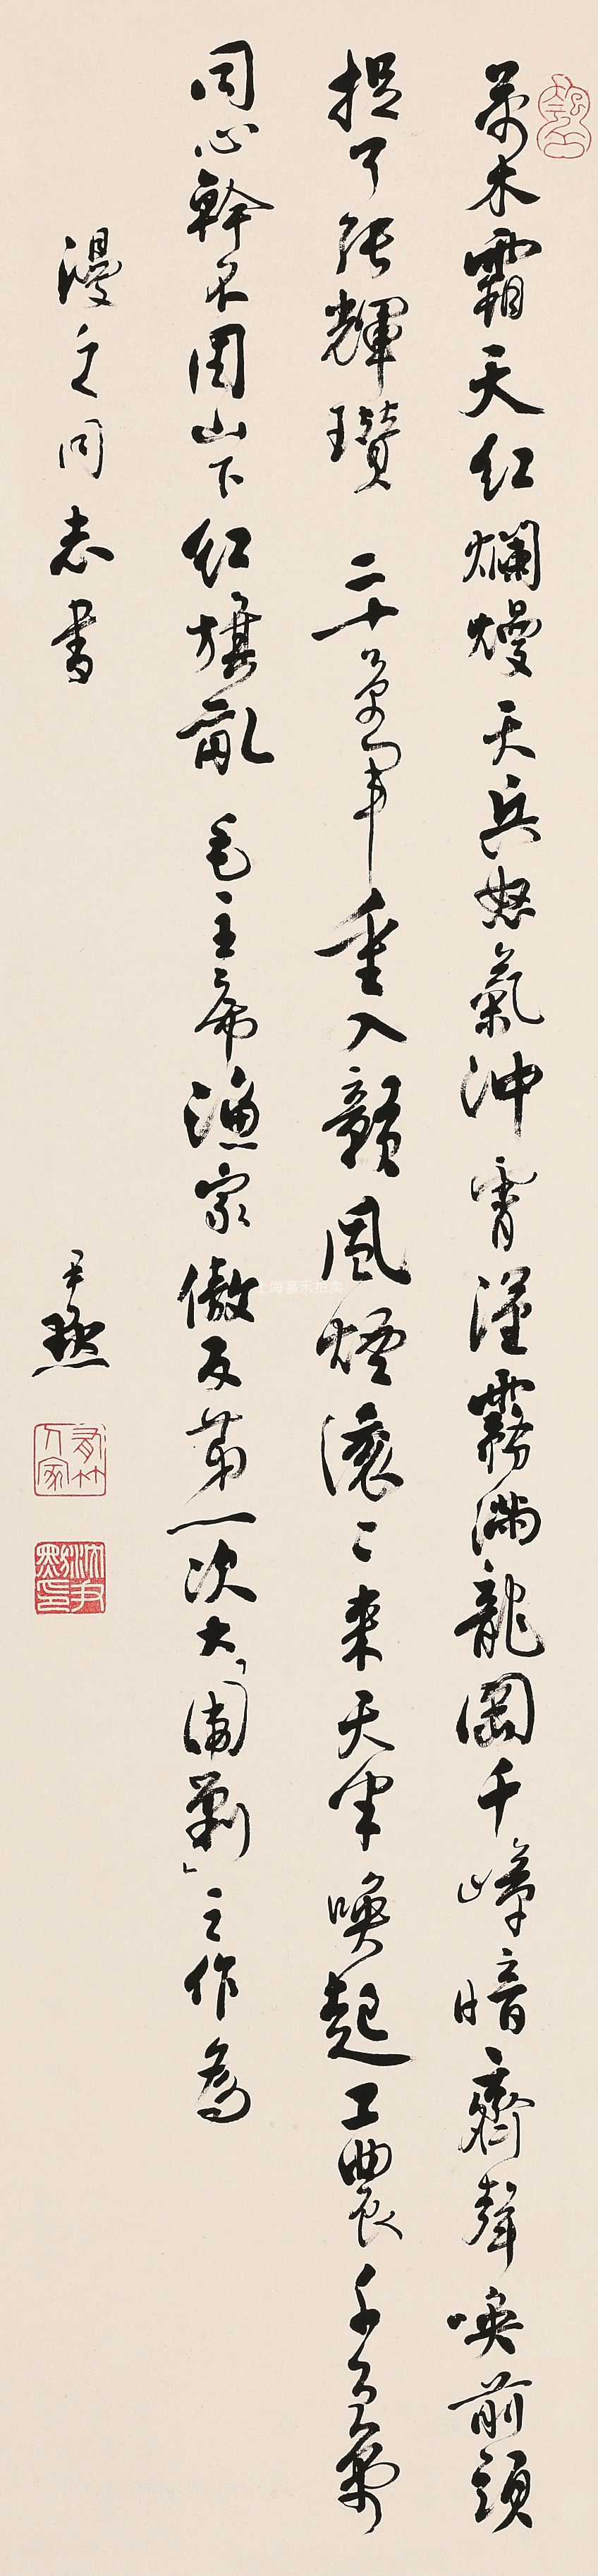 萬木霜天紅爛熳天兵怒氣沖霄漢霧滿龍岡千嶂暗齊聲喚前頭
捉了張輝瓚 二十萬軍重入贛風煙滾〻來天半喚起工農千百萬
同心幹不周山下紅旗亂 毛主席漁家傲反第一次大「圍剿」之作為
漫之同志書 尹默
有竹人家
沈尹默印
上海嘉禾拍卖